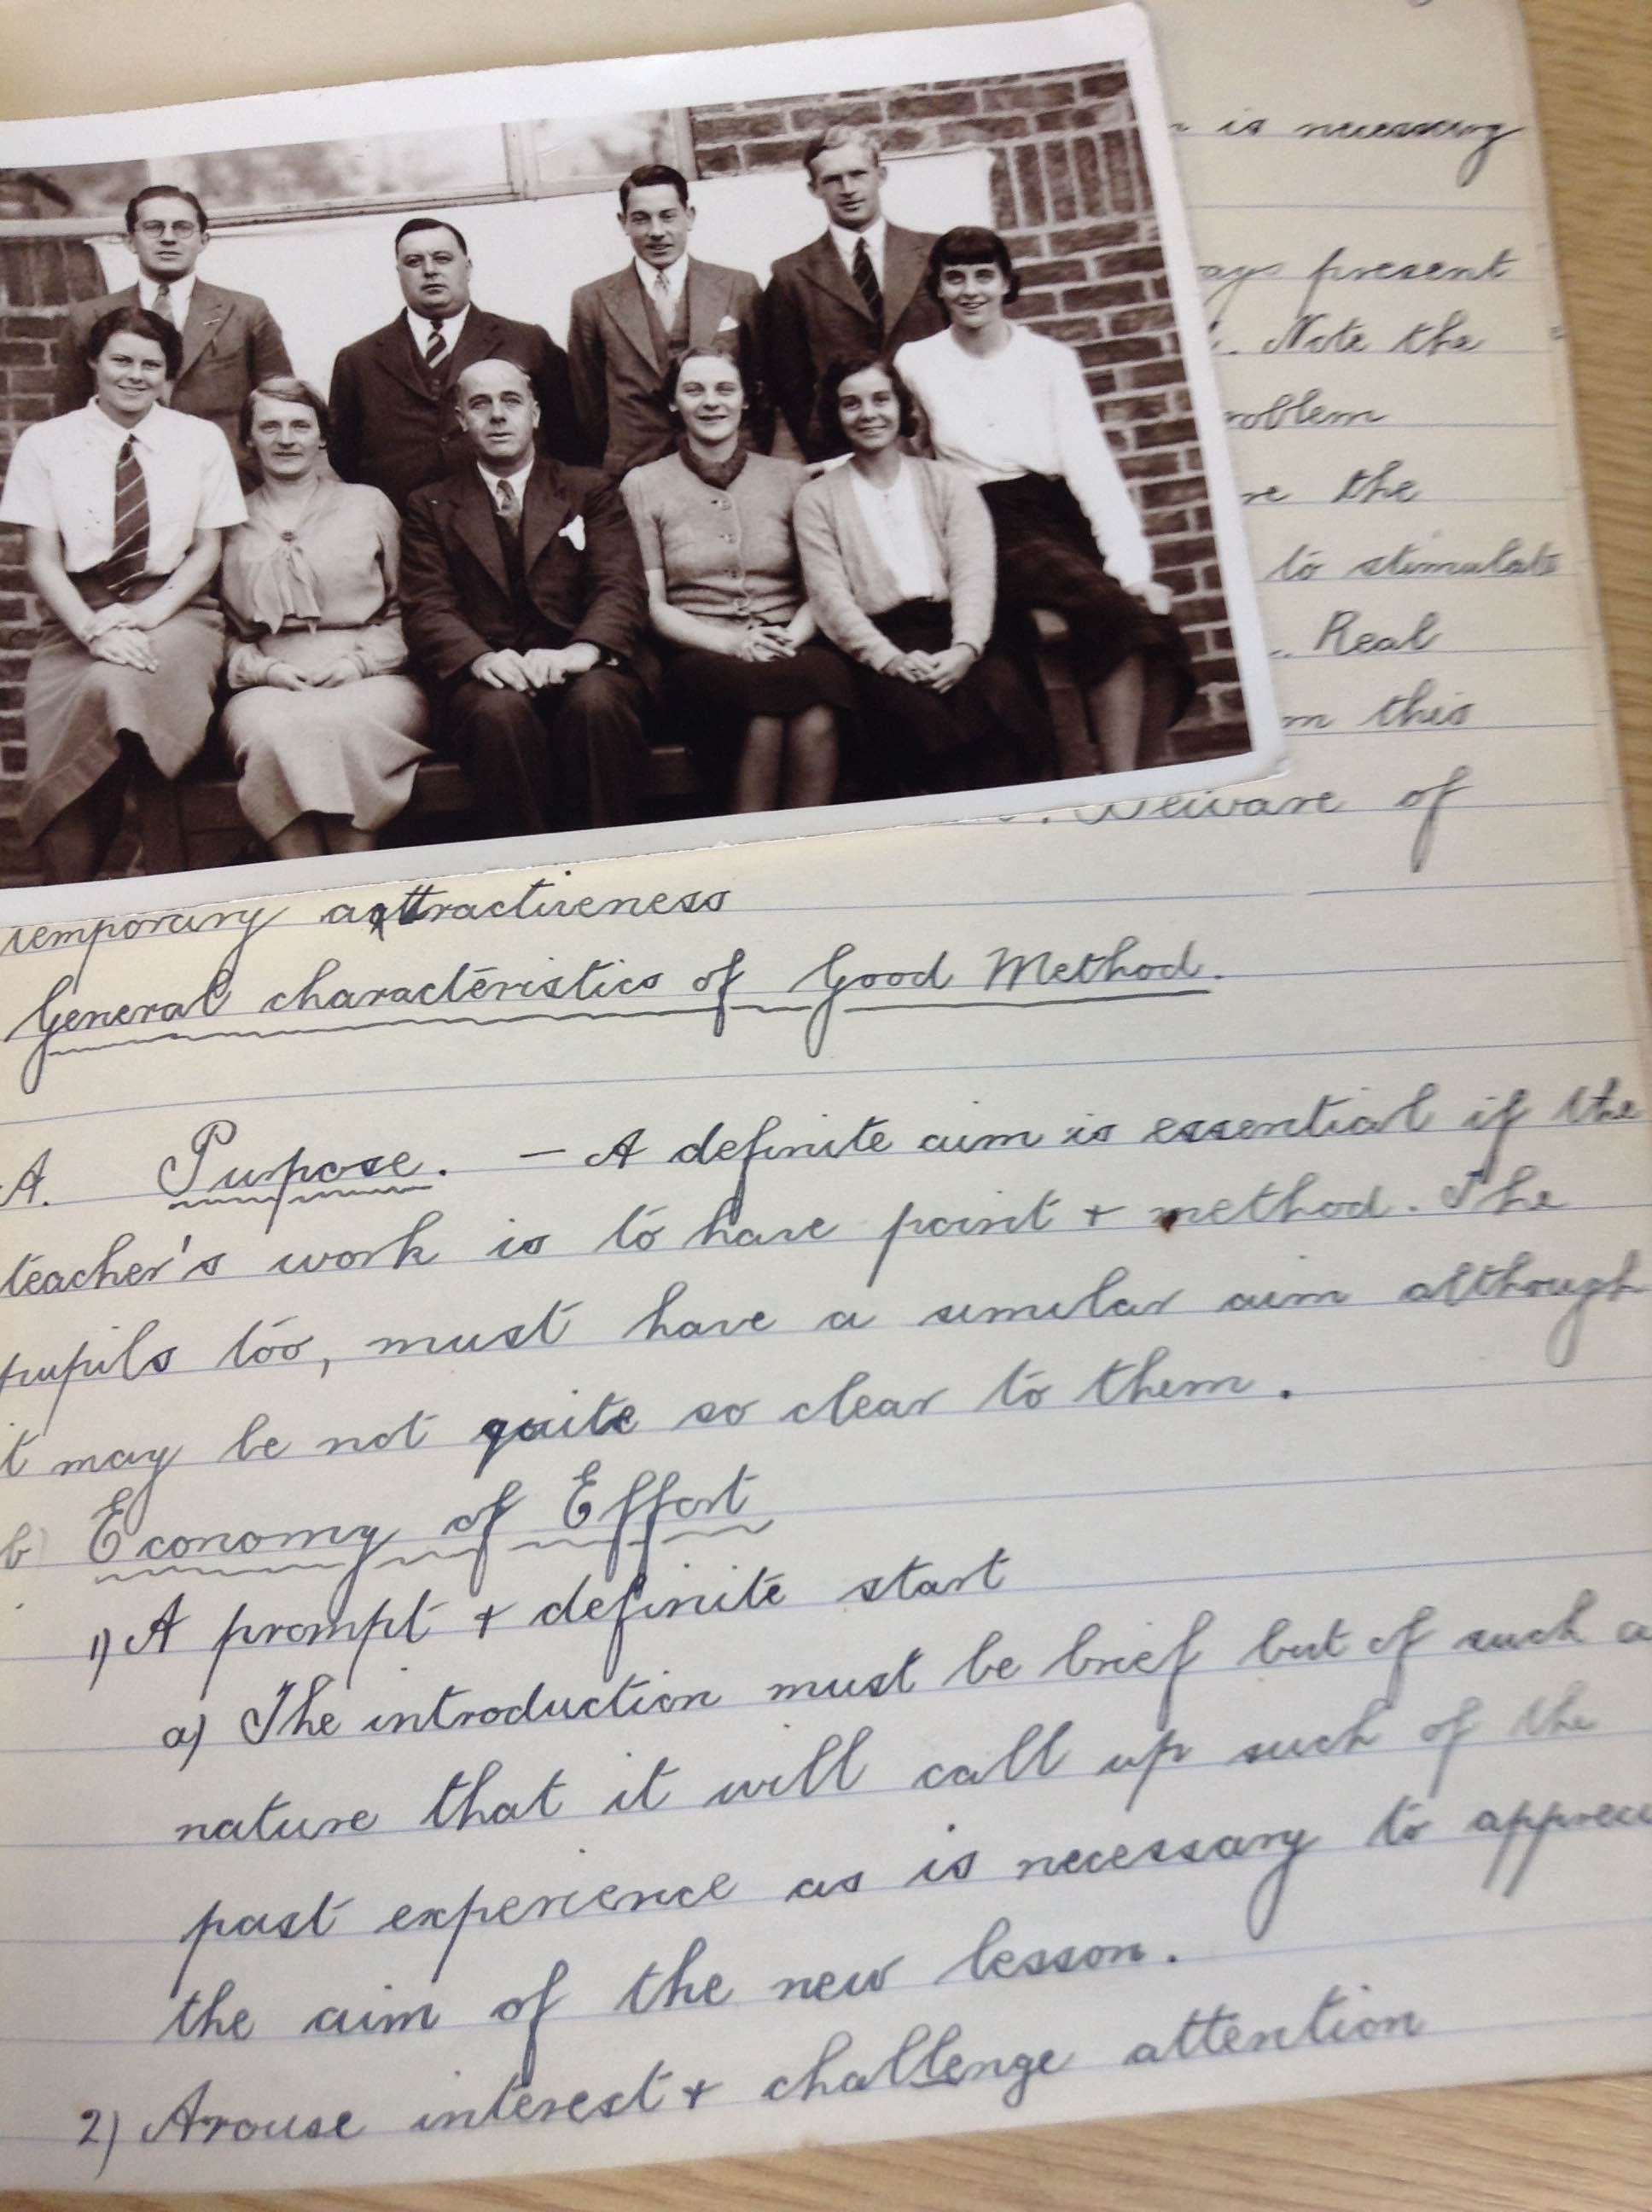 is necessary
present
. Note the
the
to stimulate
. Real
this
. Beware of
temporary attractiveness
General characteristics of Good Method.
A. Purpose. - A definite aim is essential if the
teacher's work is to have point + method. The
pupils too, must have a similar aim although
it may be not quite so clear to them.
b) Economy of Effort
1) A prompt + definite start
a) The introduction must be brief but of such a
nature that it will call up such of the
past experience as is necessary to
the aim of the new lesson.
2) Arouse interest + challenge attention